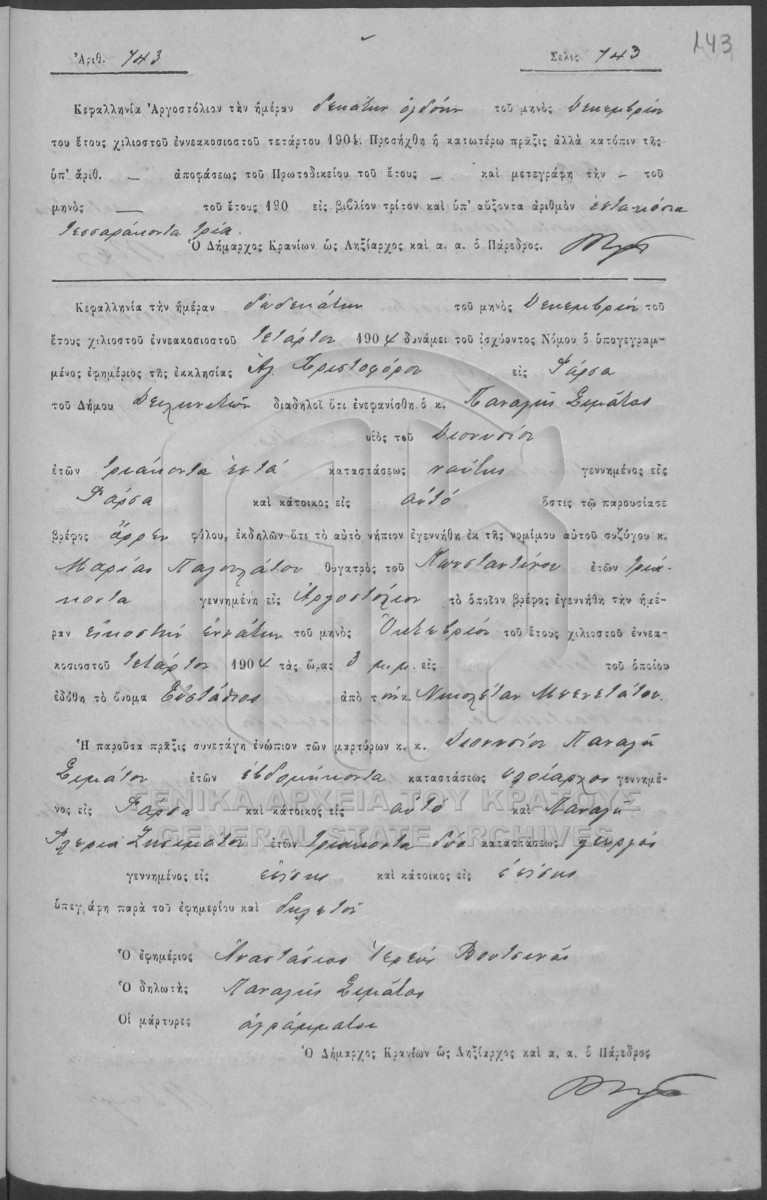 Ἀριθ. 743 Σελὶς 743
143
Κεφαλληνία Ἀργοστόλιον τὴν ἡμέραν δεκάτην ὀγδόην τοῦ μηνὸς Δεκεμβρίου
του ἔτους χιλιοστοῦ ἐννεακοσιοστοῦ τετάρτου 1904. Προσήχθη ἡ κατωτέρω πρᾶξις ἀλλὰ κατόπιν τῆς
ὑπ' ἀριθ. — ἀποφάσεως τοῦ Πρωτοδικείου τοῦ ἔτους — καὶ μετεγράφη τὴν — τοῦ
μηνὸς — τοῦ ἔτους 190 εἰς βιβλίον τρίτον καὶ ὑπ' αὔξοντα ἀριθμὸν ἑπτακόσια
τεσσαράκοντα τρία.
Ὁ Δήμαρχος Κρανίων ὡς Ληξίαρχος καὶ α. α. ὁ Πάρεδρος.
Κεφαλληνία τὴν ἡμέραν δωδεκάτην τοῦ μηνὸς Δεκεμβρίου τοῦ
ἔτους χιλιοστοῦ ἐννεακοσιοστοῦ τετάρτου 1904 δυνάμει τοῦ ἰσχύοντος Νόμου ὁ ὑπογεγραμ-
μένος ἐφημέριος τῆς ἐκκλησίας Ἁγ. Χριστοφόρου εἰς Φάρσα
τοῦ Δήμου διαδηλοῖ ὅτι ἐνεφανίσθη ὁ κ. Παναγῆς Σιμάτος
υἱὸς τοῦ Διονυσίου
ἐτῶν τριάκοντα ἑπτά καταστάσεως ναύτης γεννημένος εἰς
Φάρσα καὶ κάτοικος εἰς αὐτό ὅστις τῷ παρουσίασε
βρέφος ἄρρεν φύλου, ἐκδηλῶν ὅτι τὸ αὐτὸ νήπιον ἐγεννήθη ἐκ τῆς νομίμου αὐτοῦ συζύγου κ.
Μαρίας Παγουλάτου θυγατρὸς τοῦ Κωνσταντίνου ἐτῶν τριά-
κοντα γεννημένη εἰς Ἀργοστόλιον τὸ ὁποῖον βρέφος ἐγεννήθη τὴν ἡμέ-
ραν εἰκοστὴν ἐννάτην τοῦ μηνὸς Ὀκτωβρίου τοῦ ἔτους χιλιοστοῦ ἐννεα-
κοσιοστοῦ τετάρτου 1904 τὰς ὥρας 3 μ.μ. εἰς τοῦ ὁποίου
ἐδόθη τὸ ὄνομα Εὐστάθιος ἀπὸ τὴν κ. Νικολέταν Μπενετάτου.
Ἡ παροῦσα πρᾶξις συνετάγη ἐνώπιον τῶν μαρτύρων κ. κ. Διονυσίου Παναγῆ
Σιμάτου ἐτῶν ἑβδομήκοντα καταστάσεως πλοίαρχος γεννημέ-
νος εἰς Φάρσα καὶ κάτοικος εἰς αὐτό καὶ Παναγῆ
ἐτῶν τριάκοντα δύο καταστάσεως γεωργός
γεννημένος εἰς ἐπίσης καὶ κάτοικος εἰς ἐπίσης
ὑπεγράφη παρὰ τοῦ ἐφημερίου καὶ δηλωτοῦ
Ὁ ἐφημέριος Ἀναστάσιος Ἱερεύς Βουτσινᾶς
Ὁ δηλωτὴς Παναγῆς Σιμάτος
Οἱ μάρτυρες ἀγράμματοι
Ὁ Δήμαρχος Κρανίων ὡς Ληξίαρχος καὶ α. α. ὁ Πάρεδρος
ΓΕΝΙΚΑ ΑΡΧΕΙΑ ΤΟΥ ΚΡΑΤΟΥΣ
GENERAL STATE ARCHIVES